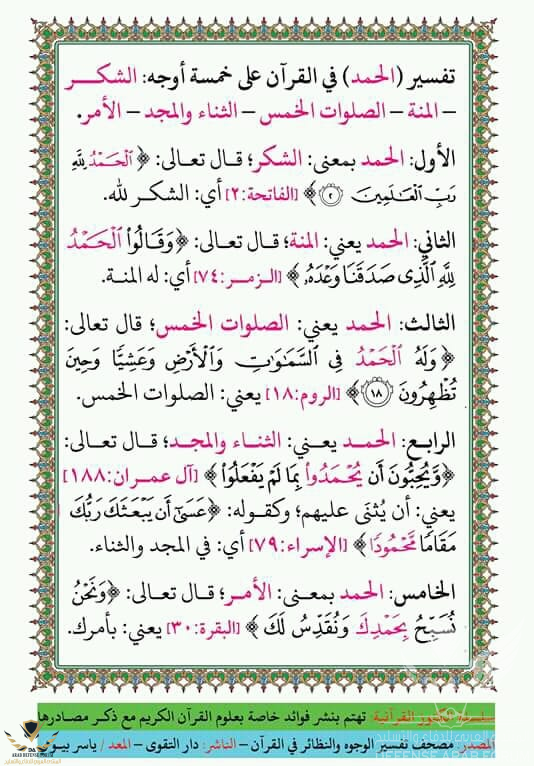 تفسير (الحمد) في القرآن على خمسة أوجه: الشكـــر
– المنة – الصلوات الخمس – الثناء والمجد – الأمر.
الأول: الحمد بمعنى: الشكر؛ قال تعالى: ﴿ ٱلْحَمْدُ لِلَّهِ
رَبِّ ٱلْعَـٰلَمِينَ ۝٢ ﴾ [الفاتحة:٢] أي: الشكر لله.
الثاني: الحمد يعني: المنة؛ قال تعالى: ﴿ وَقَالُوا۟ ٱلْحَمْدُ
لِلَّهِ ٱلَّذِى صَدَقَنَا وَعْدَهُۥ ﴾ [الـزمـر:٧٤] أي: له المنـة.
الثالث: الحمد يعني: الصلوات الخمس؛ قال تعالى:
﴿ وَلَهُ ٱلْحَمْدُ فِى ٱلسَّمَـٰوَٰتِ وَٱلْأَرْضِ وَعَشِيًّا وَحِينَ
تُظْهِرُونَ ۝١٨ ﴾ [الروم:١٨] يعني: الصلوات الخمس.
الرابع: الحمـد يعـني: الثنـاء والمجـد؛ قـال تعـالى:
﴿وَّيُحِبُّونَ أَن يُحْمَدُوا۟ بِمَا لَمْ يَفْعَلُوا۟ ﴾ [آل عمـران:١٨٨]
يعني: أن يُثنَى عليهم؛ وكقولـه: ﴿عَسَىٰٓ أَن يَبْعَثَكَ رَبُّكَ
مَقَامًا مَّحْمُودًا﴾ [الإسراء:٧٩] أي: في المجد والثناء.
الخامس: الحمد بمعنى: الأمـر؛ قال تعالى: ﴿وَنَحْنُ
نُسَبِّحُ بِحَمْدِكَ وَنُقَدِّسُ لَكَ ﴾ [البقرة:٣٠] يعني: بأمرك.
سلسلة الكنوز القرآنية تهتم بنشر فوائد خاصة بعلوم القرآن الكريم مع ذكر مصادرها
المصدر: مصحف تفسير الوجوه والنظائر في القرآن – الناشر: دار التقوى – المعد / ياسر بيـومي